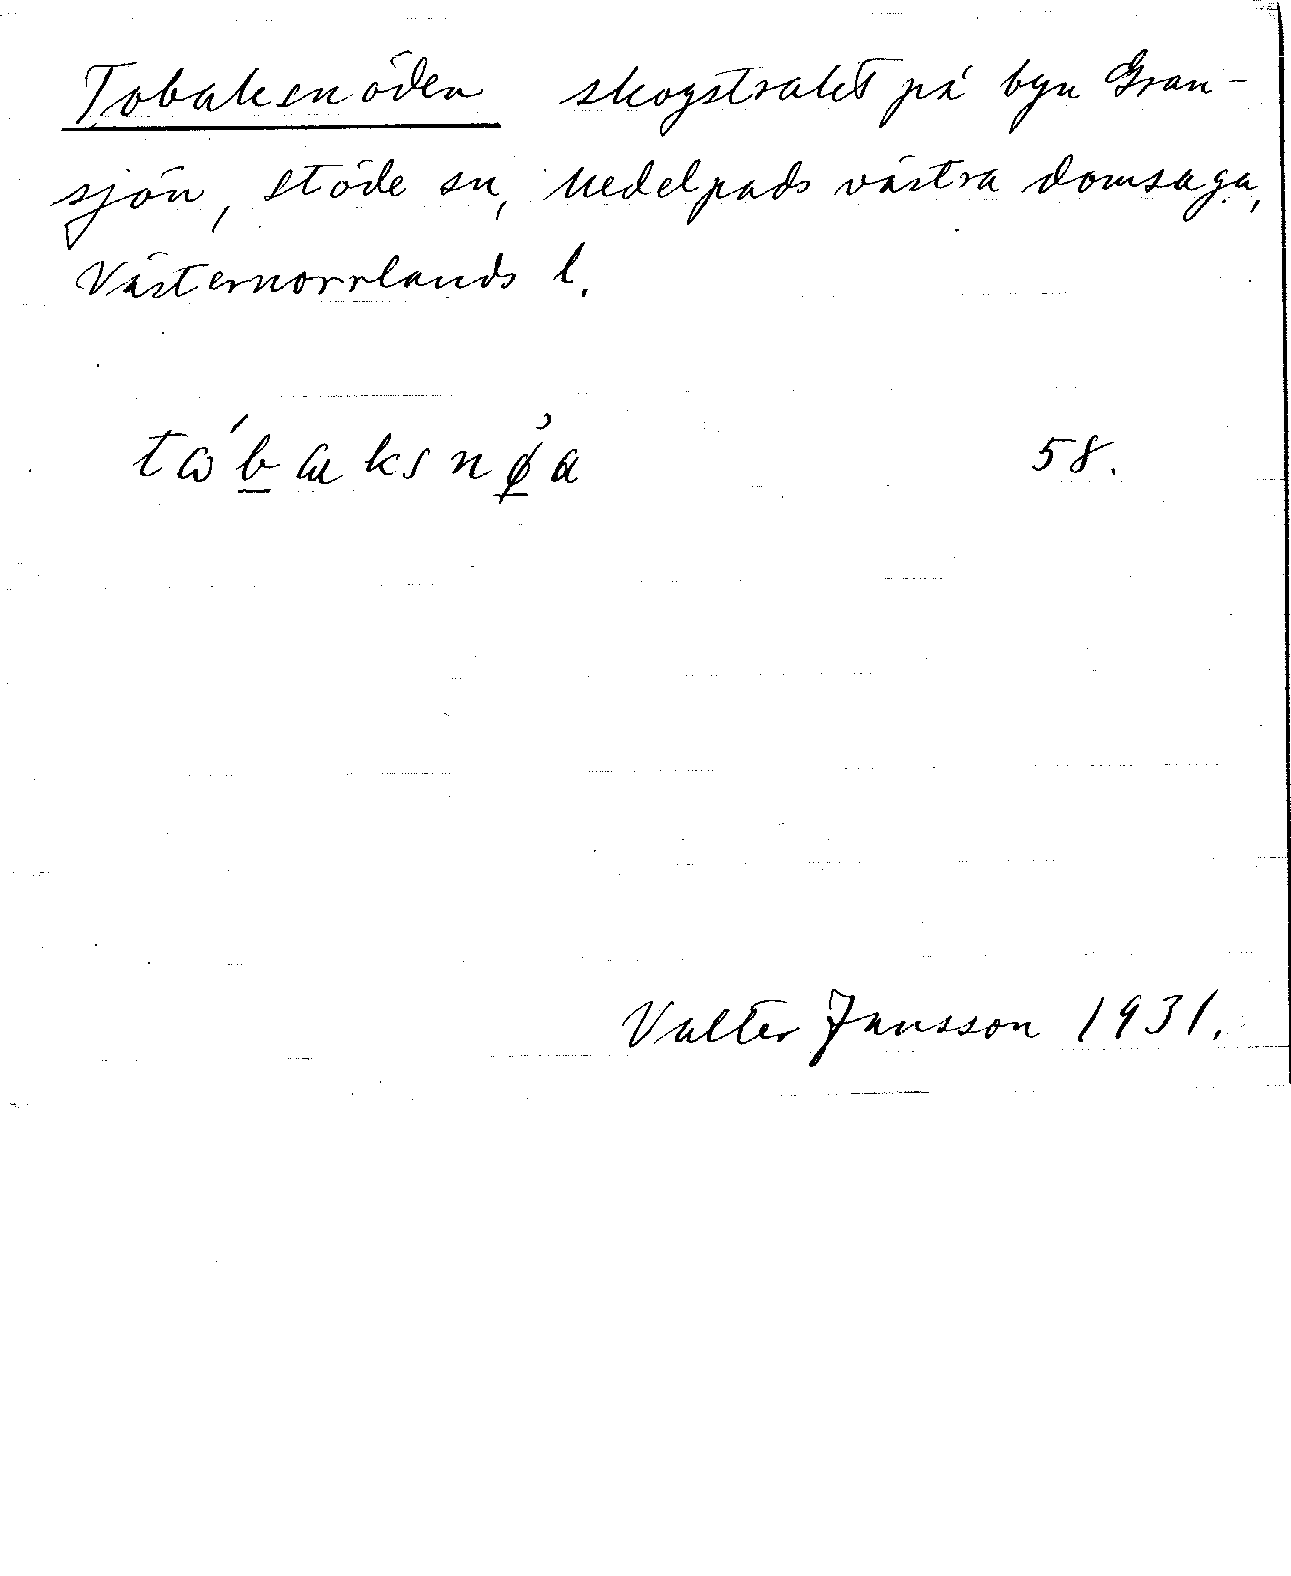 Tobaksnöden skogstrakt på byn Gran-
sjön, Stöde sn, Medelpads västra domsaga,
Västernorrlands l.
tábaksnø̀a 58.
Valter Jansson 1931.